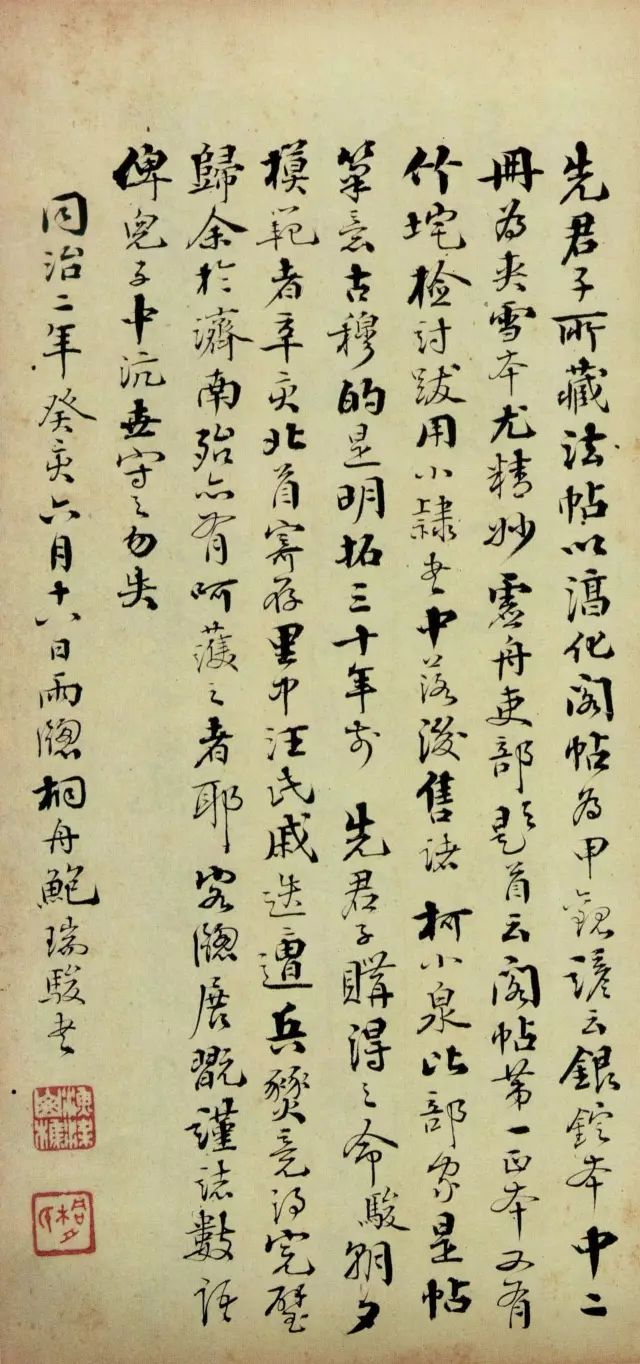 先君子所藏法帖以淳化閣帖為甲觀諺云銀錠本中二
冊為夾雪本尤精妙虛舟吏部題首云閣帖第一正本又有
竹垞檢討跋用小隸書中落後售諸柯小泉比部家是帖
筆意古穆的是明拓三十年前 先君子購得之命駿朝夕
模範者辛亥北首寄存里中汪氏戚迭遭兵燹竟得完璧
歸余於濟南殆亦有呵護之者耶客牕展翫謹誌數語
俾兒子中沆世守之勿失
同治二年癸亥六月十八日雨牕桐舟鮑瑞駿書